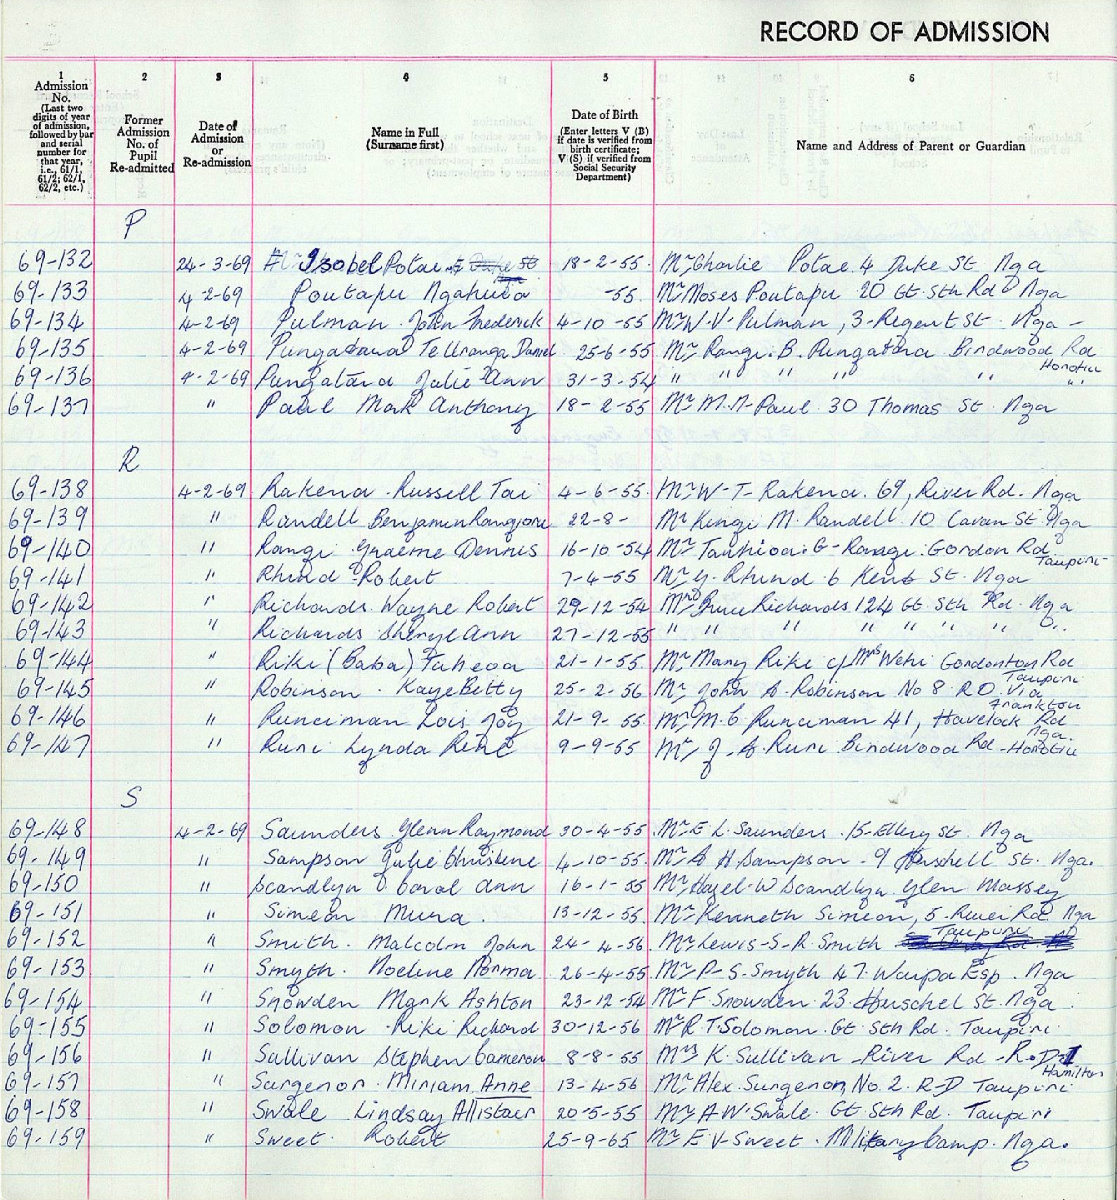 RECORD OF ADMISSION
1 2 3 4 5 6
Admission No. (Last two digits of year of admission, followed by bar and serial number for that year, i.e., 61/1, 61/2; 62/1, 62/2, etc.) Former Admission No. of Pupil Re-admitted Date of Admission or Re-admission Name in Full (Surname first) Date of Birth (Enter letters V (B) if date is verified from birth certificate; V (S) if verified from Social Security Department) Name and Address of Parent or Guardian
P
69-132 24-3-69 Isobel Potae 18-2-55 Mr Charlie Potae 4 Duke St Nga
69-133 4-2-69 Poutapu Ngahuia -55 Mr Moses Poutapu 20 Gt Sth Rd Nga
69-134 4-2-69 Pulman John Frederick 4-10-55 Mr W. V. Pulman, 3 Regent St. Nga -
69-135 4-2-69 Pungatara Te Uranga Daniel 25-6-55 Mr Rangi. B. Pungatara Bindwood Rd Honotiu
69-136 4-2-69 Pungatara Julie Ann 31-3-54 " " " " " "
69-137 " Paul Mark Anthony 18-2-55 Mr M. A. Paul 30 Thomas St. Nga
R
69-138 4-2-69 Rakena Russell Tai 4-6-55 Mr W-T-Rakena. 69, River Rd. Nga
69-139 " Randell Benjamin 22-8- Mr Kingi M. Randell. 10 Cavan St Nga
69-140 " Rangi Graeme Dennis 16-10-54 Mr G- Gordon Rd Taupiri
69-141 " Rhind Robert 7-4-55 Mr G. Rhind 6 Kent St. Nga
69-142 " Richards Wayne Robert 29-12-54 Mrs Richards 124 Gt Sth Rd. Nga
69-143 " Richards Sheryl Ann 27-12-55 " " " " " " "
69-144 " Riki (Baba) Taheoa 21-1-55 Mr Many Riki c/ Mrs Wehi Gordonton Rd Taupiri
69-145 " Robinson - Kaye Betty 25-2-56 Mr John A. Robinson No 8 R.D. Via Frankton
69-146 " Runciman Lois Joy 21-9-55 Mr M. C Runciman 41, Havelock Rd Nga.
69-147 " Ruri Lynda Rene 9-9-55 Mr J. A. Ruri Bindwood Rd - Honotiu
S
69-148 4-2-69 Saunders Glenn Raymond 30-4-55 Mr E L. Saunders 15 Ellery St. Nga
69-149 " Sampson Julie Christine 4-10-55 Mr A H Sampson - 9 Herschell St. Nga.
69-150 " Scandlyn Carol Ann 16-1-55 Mr Hazel-W Scandlyn Glen Massey
69-151 " Simeon Mura. 13-12-55 Mr Kenneth Simeon, 5 River Rd. Nga
69-152 " Smith. Malcolm John 24-4-56 Mr Lewis-S-R Smith Taupiri
69-153 " Smyth. Noeline Norma 26-4-55 Mr P-S-Smyth 47 Waipa Esp. Nga
69-154 " Snowden Mark Ashton 23-12-54 Mr F. Snowden 23 Huschel St. Nga
69-155 " Solomon - Riki Richard 30-12-56 Mr R T. Solomon. Gt Sth Rd. Taupiri
69-156 " Sullivan Stephen Cameron 8-8-55 Mrs K Sullivan - River Rd - R.D. 1 Hamilton
69-157 " Surgenor Miriam Anne 13-4-56 Mr Alex Surgenor, No. 2 R-D Taupiri
69-158 " Swale Lindsay Allistair 20-5-55 Mr A W. Swale. Gt Sth Rd. Taupiri
69-159 " Sweet. Robert 25-9-65 Mr E V. Sweet. Military Camp. Nga.